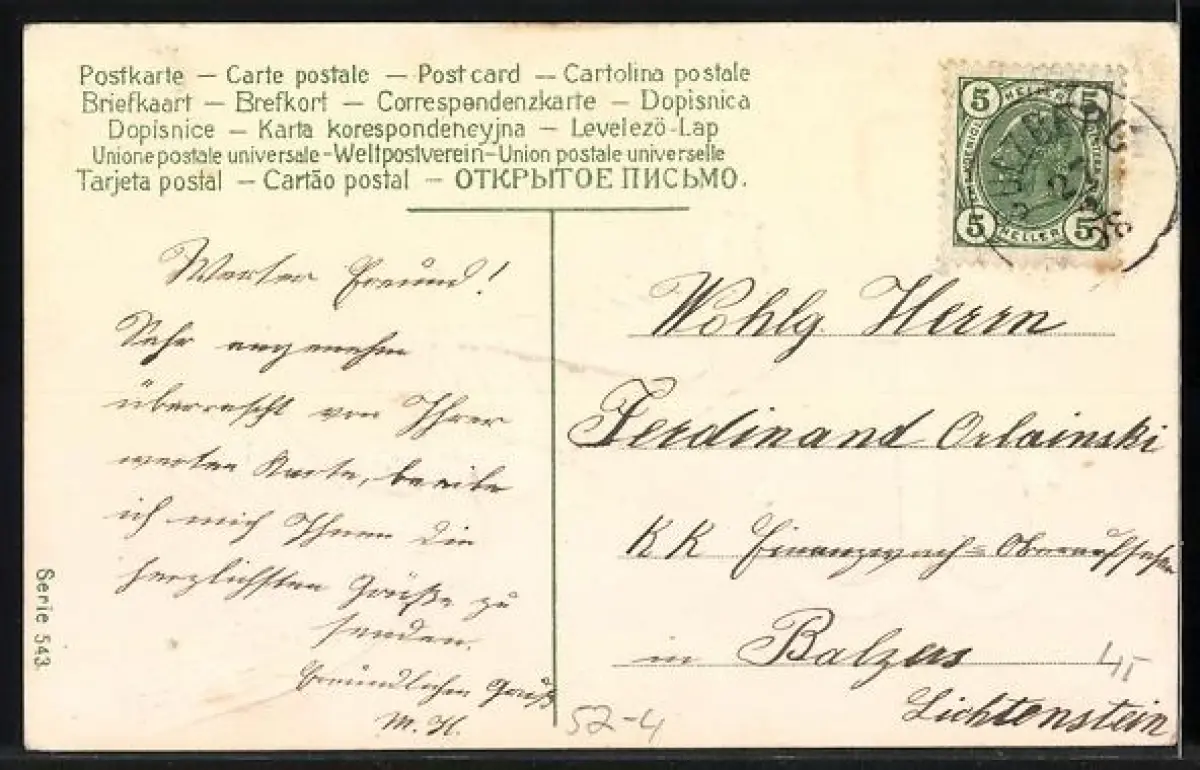 Postkarte — Carte postale — Post card — Cartolina postale
Briefkaart — Brefkort — Correspondenzkarte — Dopisnica
Dopisnice — Karta korespondencyjna — Levelező-Lap
Unione postale universale-Weltpostverein-Union postale universelle
Tarjeta postal — Cartão postal — ОТКРЫТОЕ ПИСЬМО.
5 HELLER 5
5 HELLER 5
Werter Freund!
Sehr angenehm
überrascht von Ihrer
werten Karte, beeile
ich mich Ihnen die
herzlichsten Grüße zu
senden.
Freundlichen Gruß
M. H.
Wohlg Herrn
Ferdinand Orlainski
KK Finanzwach-Oberaufseher
in Balzers
Lichtenstein
Serie 543.
52-4